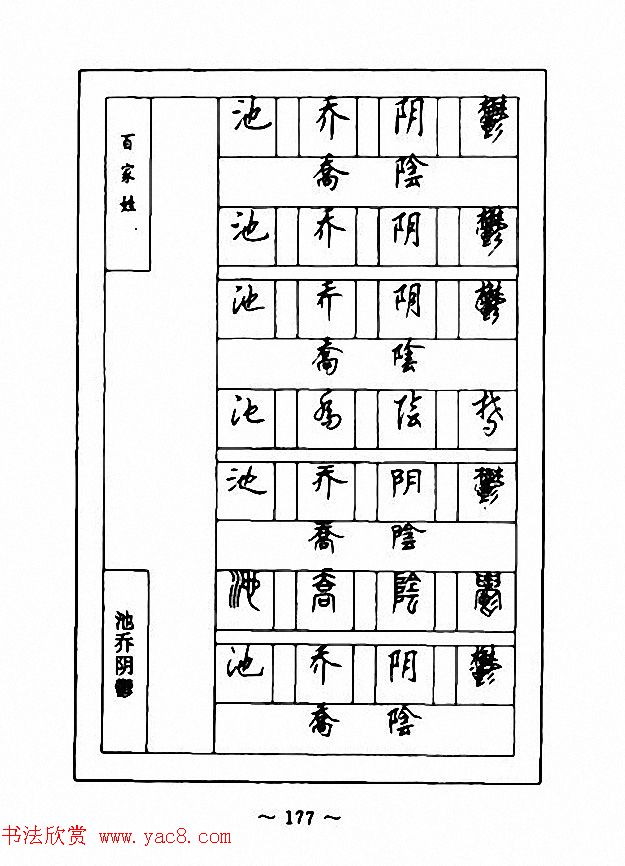 百家姓
池 乔 阴 鬱
喬 陰
池 乔 阴 鬱
池 乔 阴 鬱
喬 陰
池 喬 陰 鬱
池 乔 阴 鬱
喬 陰
池 喬 陰 鬱
池 乔 阴 鬱
喬 陰
池乔阴鬱
~ 177 ~
书法欣赏 www.yac8.com